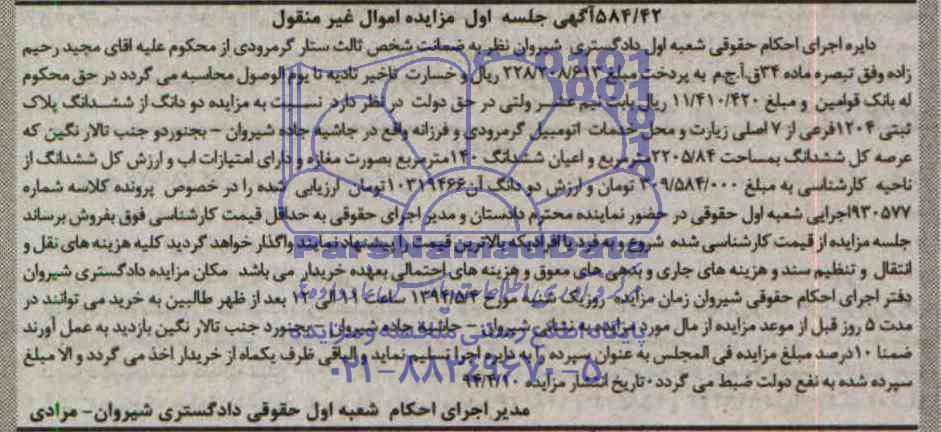 ۵۸۴/۴۲آگهی جلسه اول مزایده اموال غیر منقول
دایره اجرای احکام حقوقی شعبه اول دادگستری شیروان نظر به ضمانت شخص ثالث ستار گرمرودی از محکوم علیه اقای مجید رحیم
زاده وفق تبصره ماده ۳۴ق.آ.ج.م به پرداخت مبلغ ۲۲۸/۲۰۸/۶۱۳ ریال و خسارت تاخیر تادیه تا یوم الوصول محاسبه می گردد در حق محکوم
له بانک قوامین و مبلغ ۱۱/۴۱۰/۴۲۰ ریال بابت نیم عشر ولتی در حق دولت در نظر دارد نسبت به مزایده دو دانگ از ششدانگ پلاک
ثبتی ۱۲۰۴فرعی از ۷ اصلی زیارت و محل خدمات اتومبیل گرمرودی و فرزانه واقع در حاشیه جاده شیروان - بجنوردو جنب تالار نگین که
عرصه کل ششدانگ بمساحت ۲۲۰۵/۸۴مترمربع و اعیان ششدانگ ۱۴۰مترمربع بصورت مغازه و دارای امتیازات اب و ارزش کل ششدانگ از
ناحیه کارشناسی به مبلغ ۳۰۹/۵۸۴/۰۰۰ تومان و ارزش دو دانگ آن۱۰۳۱۹۴۶۶تومان ارزیابی شده را در خصوص پرونده کلاسه شماره
۹۳۰۵۷۷اجرایی شعبه اول حقوقی در حضور نماینده محترم دادستان و مدیر اجرای حقوقی به حداقل قیمت کارشناسی فوق بفروش برساند
جلسه مزایده از قیمت کارشناسی شده شروع و به فرد یا افرادیکه بالاترین قیمت را پیشنهاد نمایند واگذار خواهد گردید کلیه هزینه های نقل و
انتقال و تنظیم سند و هزینه های جاری و بدهی های معوق و هزینه های احتمالی بعهده خریدار می باشد مکان مزایده دادگستری شیروان
دفتر اجرای احکام حقوقی شیروان زمان مزایده روز یک شنبه مورخ ۱۳۹۴/۵/۴ ساعت ۱۱ الی ۱۲ بعد از ظهر طالبین به خرید می توانند در
مدت ۵ روز قبل از موعد مزایده از مال مورد مزایده به نشانی شیروان - حاشیه جاده شیروان - بجنورد جنب تالار نگین بازدید به عمل آورند
ضمنا ۱۰درصد مبلغ مزایده فی المجلس به عنوان سپرده را به دایره اجرا تسلیم نماید و الباقی ظرف یکماه از خریدار اخذ می گردد و الا مبلغ
سپرده شده به نفع دولت ضبط می گردد.تاریخ انتشار مزایده ۹۴/۴/۱۰
مدیر اجرای احکام شعبه اول حقوقی دادگستری شیروان- مرادی
ParsNamadData
پایگاه اطلاع رسانی مناقصه و مزایده
۰۲۱-۸۸۳۴۹۶۷۰-۵